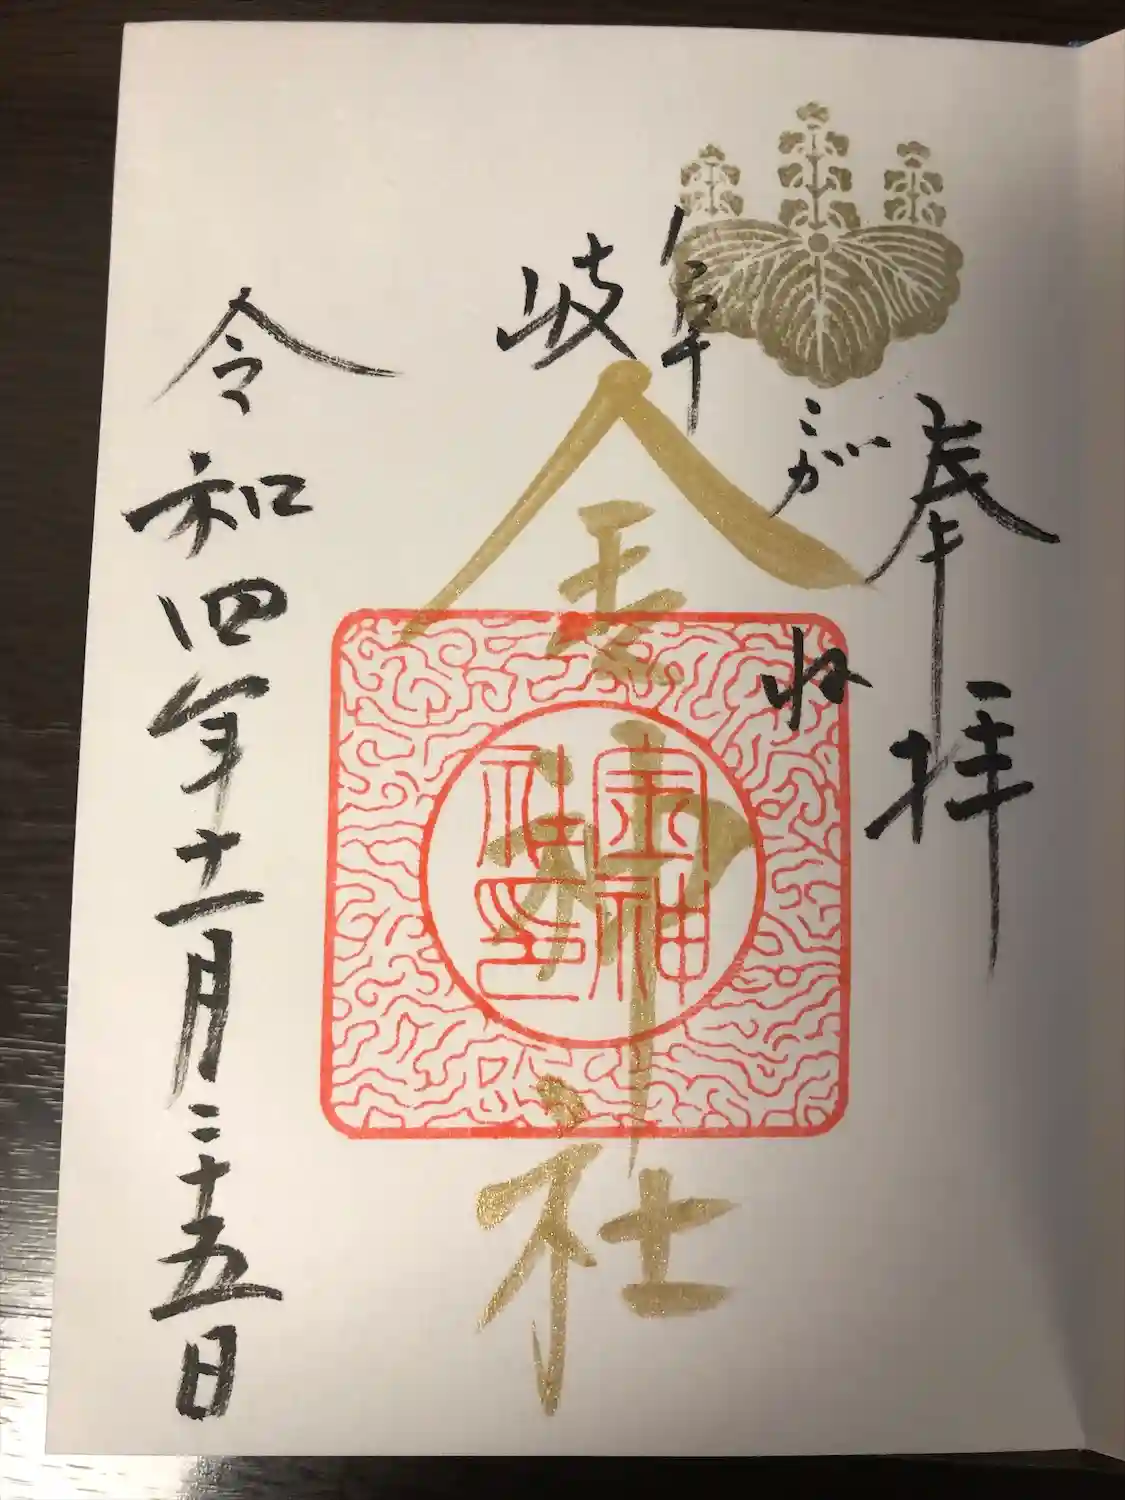 奉拝
こがね
岐阜
金神社
金神社印
令和四年十一月二十五日